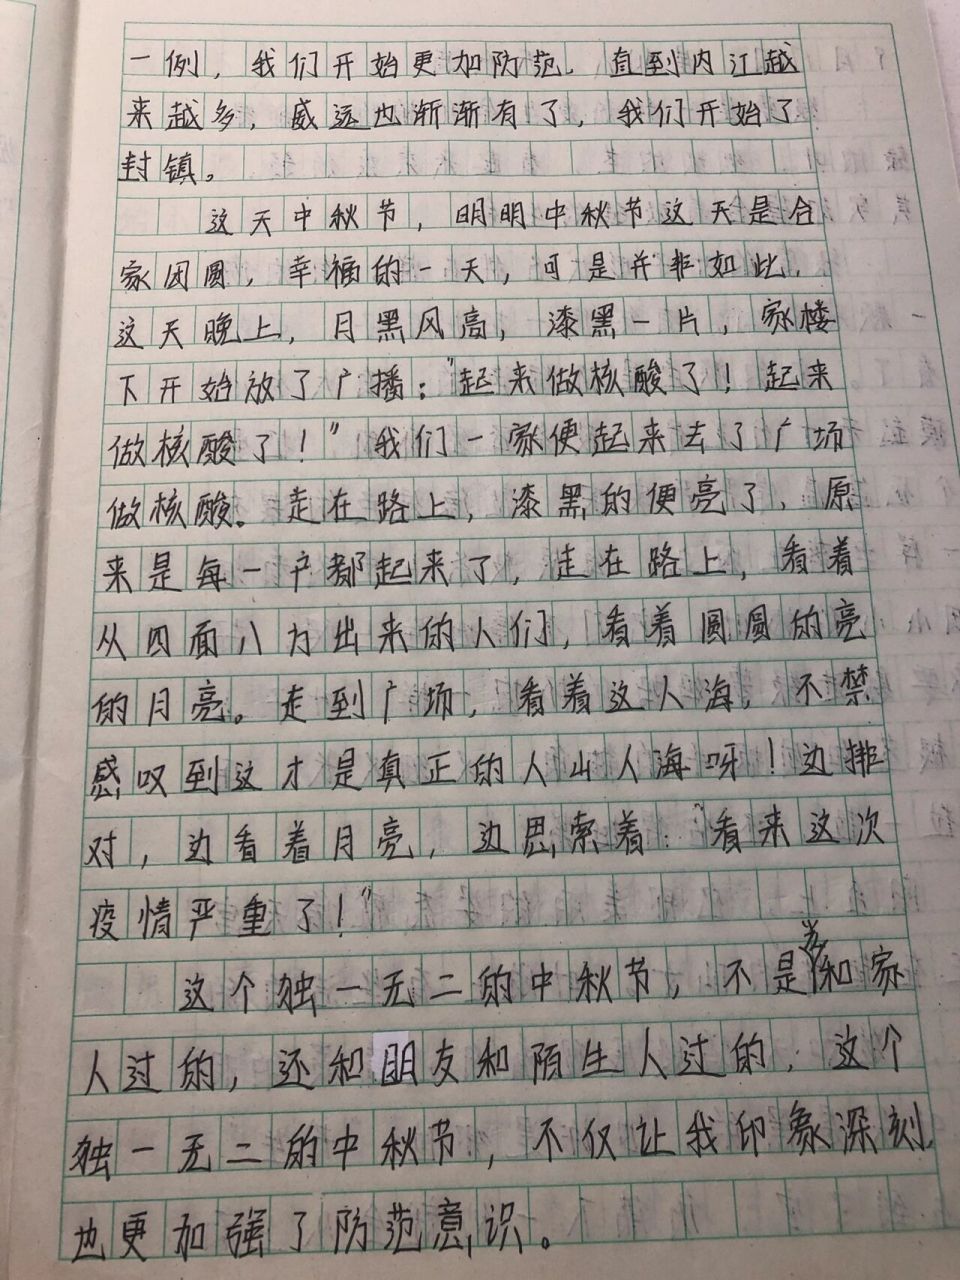 一例，我们开始更加防范。直到内江越
来越多，威远也渐渐有了，我们开始了
封镇。
这天中秋节，明明中秋节这天是合
家团圆，幸福的一天，可是并非如此，
这天晚上，月黑风高，漆黑一片，家楼
下开始放了广播："起来做核酸了！起来
做核酸了！"我们一家便起来去了广场
做核酸。走在路上，漆黑的便亮了，原
来是每一户都起来了，走在路上，看着
从四面八方出来的人们，看着圆圆的亮
的月亮。走到广场，看着这人海，不禁
感叹到这才是真正的人山人海呀！边排
对，边看着月亮，边思索着："看来这次
疫情严重了！"
这个独一无二的中秋节，不是和家
人过的，还和朋友和陌生人过的，这个
独一无二的中秋节，不仅让我印象深刻，
也更加强了防范意识。